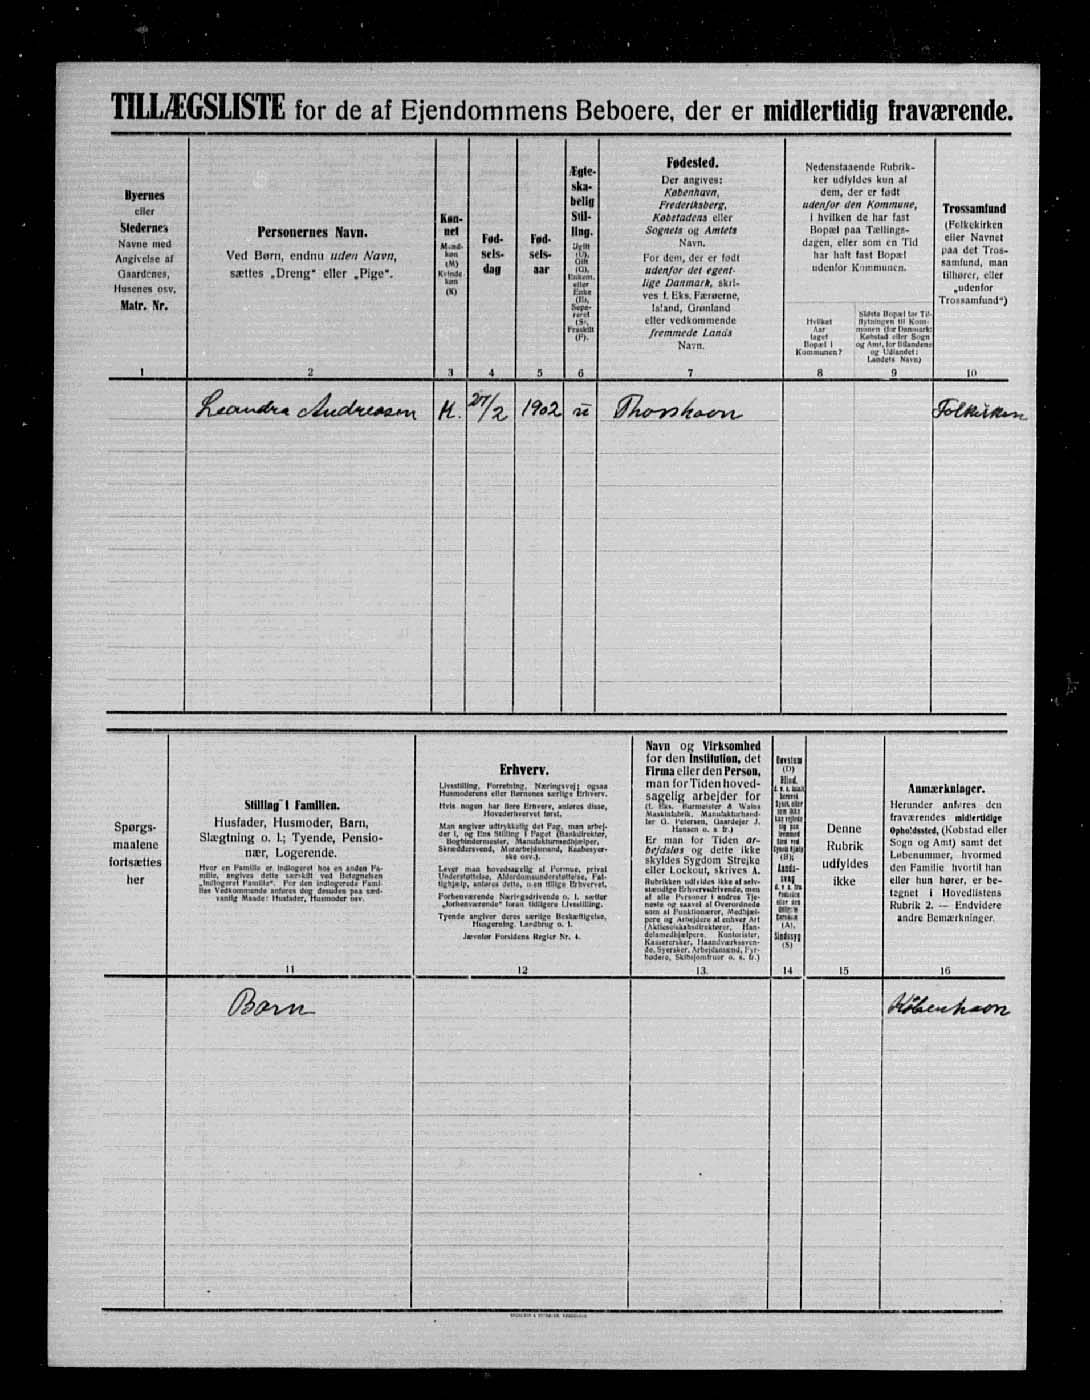 TILLÆGSLISTE for de af Ejendommens Beboere, der er midlertidig fraværende.
Byernes
eller
Stedernes
Navne med
Angivelse af
Gaardenes,
Husenes osv.
Matr. Nr.
Personernes Navn.
Ved Børn, endnu uden Navn,
sættes „Dreng“ eller „Pige“.
Køn-
net
Mand-
køn
(M)
Kvinde
køn
(K)
Fød-
sels-
dag
Fød-
sels-
aar
Ægte-
ska-
belig
Stil-
ling.
Ugift
(U),
Gift
(G),
Enkem.
eller
Enke
(E),
Sepa-
reret
(S),
Fraskilt
(F).
Fødested.
Der angives:
København,
Frederiksberg,
Købstadens eller
Sognets og Amtets
Navn.
For dem, der er født
udenfor det egent-
lige Danmark, skri-
ves f. Eks. Færøerne,
Island, Grønland
eller vedkommende
fremmede Lands
Navn.
Nedenstaaende Rubrik-
ker udfyldes kun af
dem, der er født
udenfor den Kommune,
i hvilken de har fast
Bopæl paa Tællings-
dagen, eller som en Tid
har haft fast Bopæl
udenfor Kommunen.
Hvilket
Aar
taget
Bopæl i
Kommunen?
Sidste Bopæl før Til-
flytningen til Kom-
munen (for Danmark:
Købstad eller Sogn
og Amt, for Bilandene
og Udlandet:
Landets Navn)
Trossamfund
(Folkekirken
eller Navnet
paa det Tros-
samfund, man
tilhører, eller
„udenfor
Trossamfund“)
1 2 3 4 5 6 7 8 9 10
Leandra Andreasen K. 27/2 1902 u Thorshavn Folkekirken
Spørgs-
maalene
fortsættes
her
Stilling i Familien.
Husfader, Husmoder, Barn,
Slægtning o. l.; Tyende, Pensio-
nær, Logerende.
Hvor en Familie er indlogeret hos en anden Fa-
milie, angives dette særskilt ved Betegnelsen
„Indlogeret Familie“. For den indlogerede Fami-
lies Vedkommende anføres deg desuden paa sæd-
vanlig Maade: Husfader, Husmoder osv.
Erhverv.
Livsstilling, Forretning, Næringsvej; ogsaa
Husmoderens eller Børnenes særlige Erhverv.
Hvis nogen har flere Erhverv, anføres disse,
Hovederhvervet først.
Man angiver udtrykkelig det Fag, man arbej-
der i, og Ens Stilling i Faget (Bankdirektør,
Bogbindermester, Manufakturmedhjælper,
Skræddersvend, Murarbejdsmand, Kaabesyer-
ske osv.).
Lever man hovedsagelig af Formue, privat
Understøttelse, Alderdomsunderstøttelse, Fat-
tighjælp, anføres dette, men tillige Erhvervet.
Forhenværende Næringsdrivende o. l. sætter
„forhenværende“ foran tidligere Livsstilling.
Tyende angiver deres særlige Beskæftigelse,
Husgerning, Landbrug o. l.
Jævnfør Forsidens Regler Nr. 4.
Navn og Virksomhed
for den Institution, det
Firma eller den Person,
man for Tiden hoved-
sagelig arbejder for
(f. Eks. Burmeister & Wains
Maskinfabrik, Manufakturhand-
ler G. Petersen, Gaardejer J.
Hansen o. s. fr.)
Er man for Tiden ar-
bejdsløs og dette ikke
skyldes Sygdom Strejke
eller Lockout, skrives A.
Rubrikken udfyldes ikke af selv-
stændige Erhvervsdrivende, men
af alle Personer i andres Tje-
neste og saavel af Overordnede
som af Funktionærer, Medhjæl-
pere og Arbejdere af enhver Art
(Aktieselskabsdirektører, Han-
delsmedhjælpere, Kontorister,
Kasserersker, Haandværkssven-
de, Syersker, Arbejdsmænd, Fyr-
bødere, Skibsjomfruer o. s. fr.)
Døvstum
(D)
Blind,
Sindssyg
(S)
Denne
Rubrik
udfyldes
ikke
Anmærkninger.
Herunder anføres den
fraværendes midlertidige
Opholdssted, (Købstad eller
Sogn og Amt) samt det
Løbenummer, hvormed
den Familie hvortil han
eller hun hører, er be-
tegnet i Hovedlistens
Rubrik 2. — Endvidere
andre Bemærkninger.
11 12 13. 14 15 16
Barn København